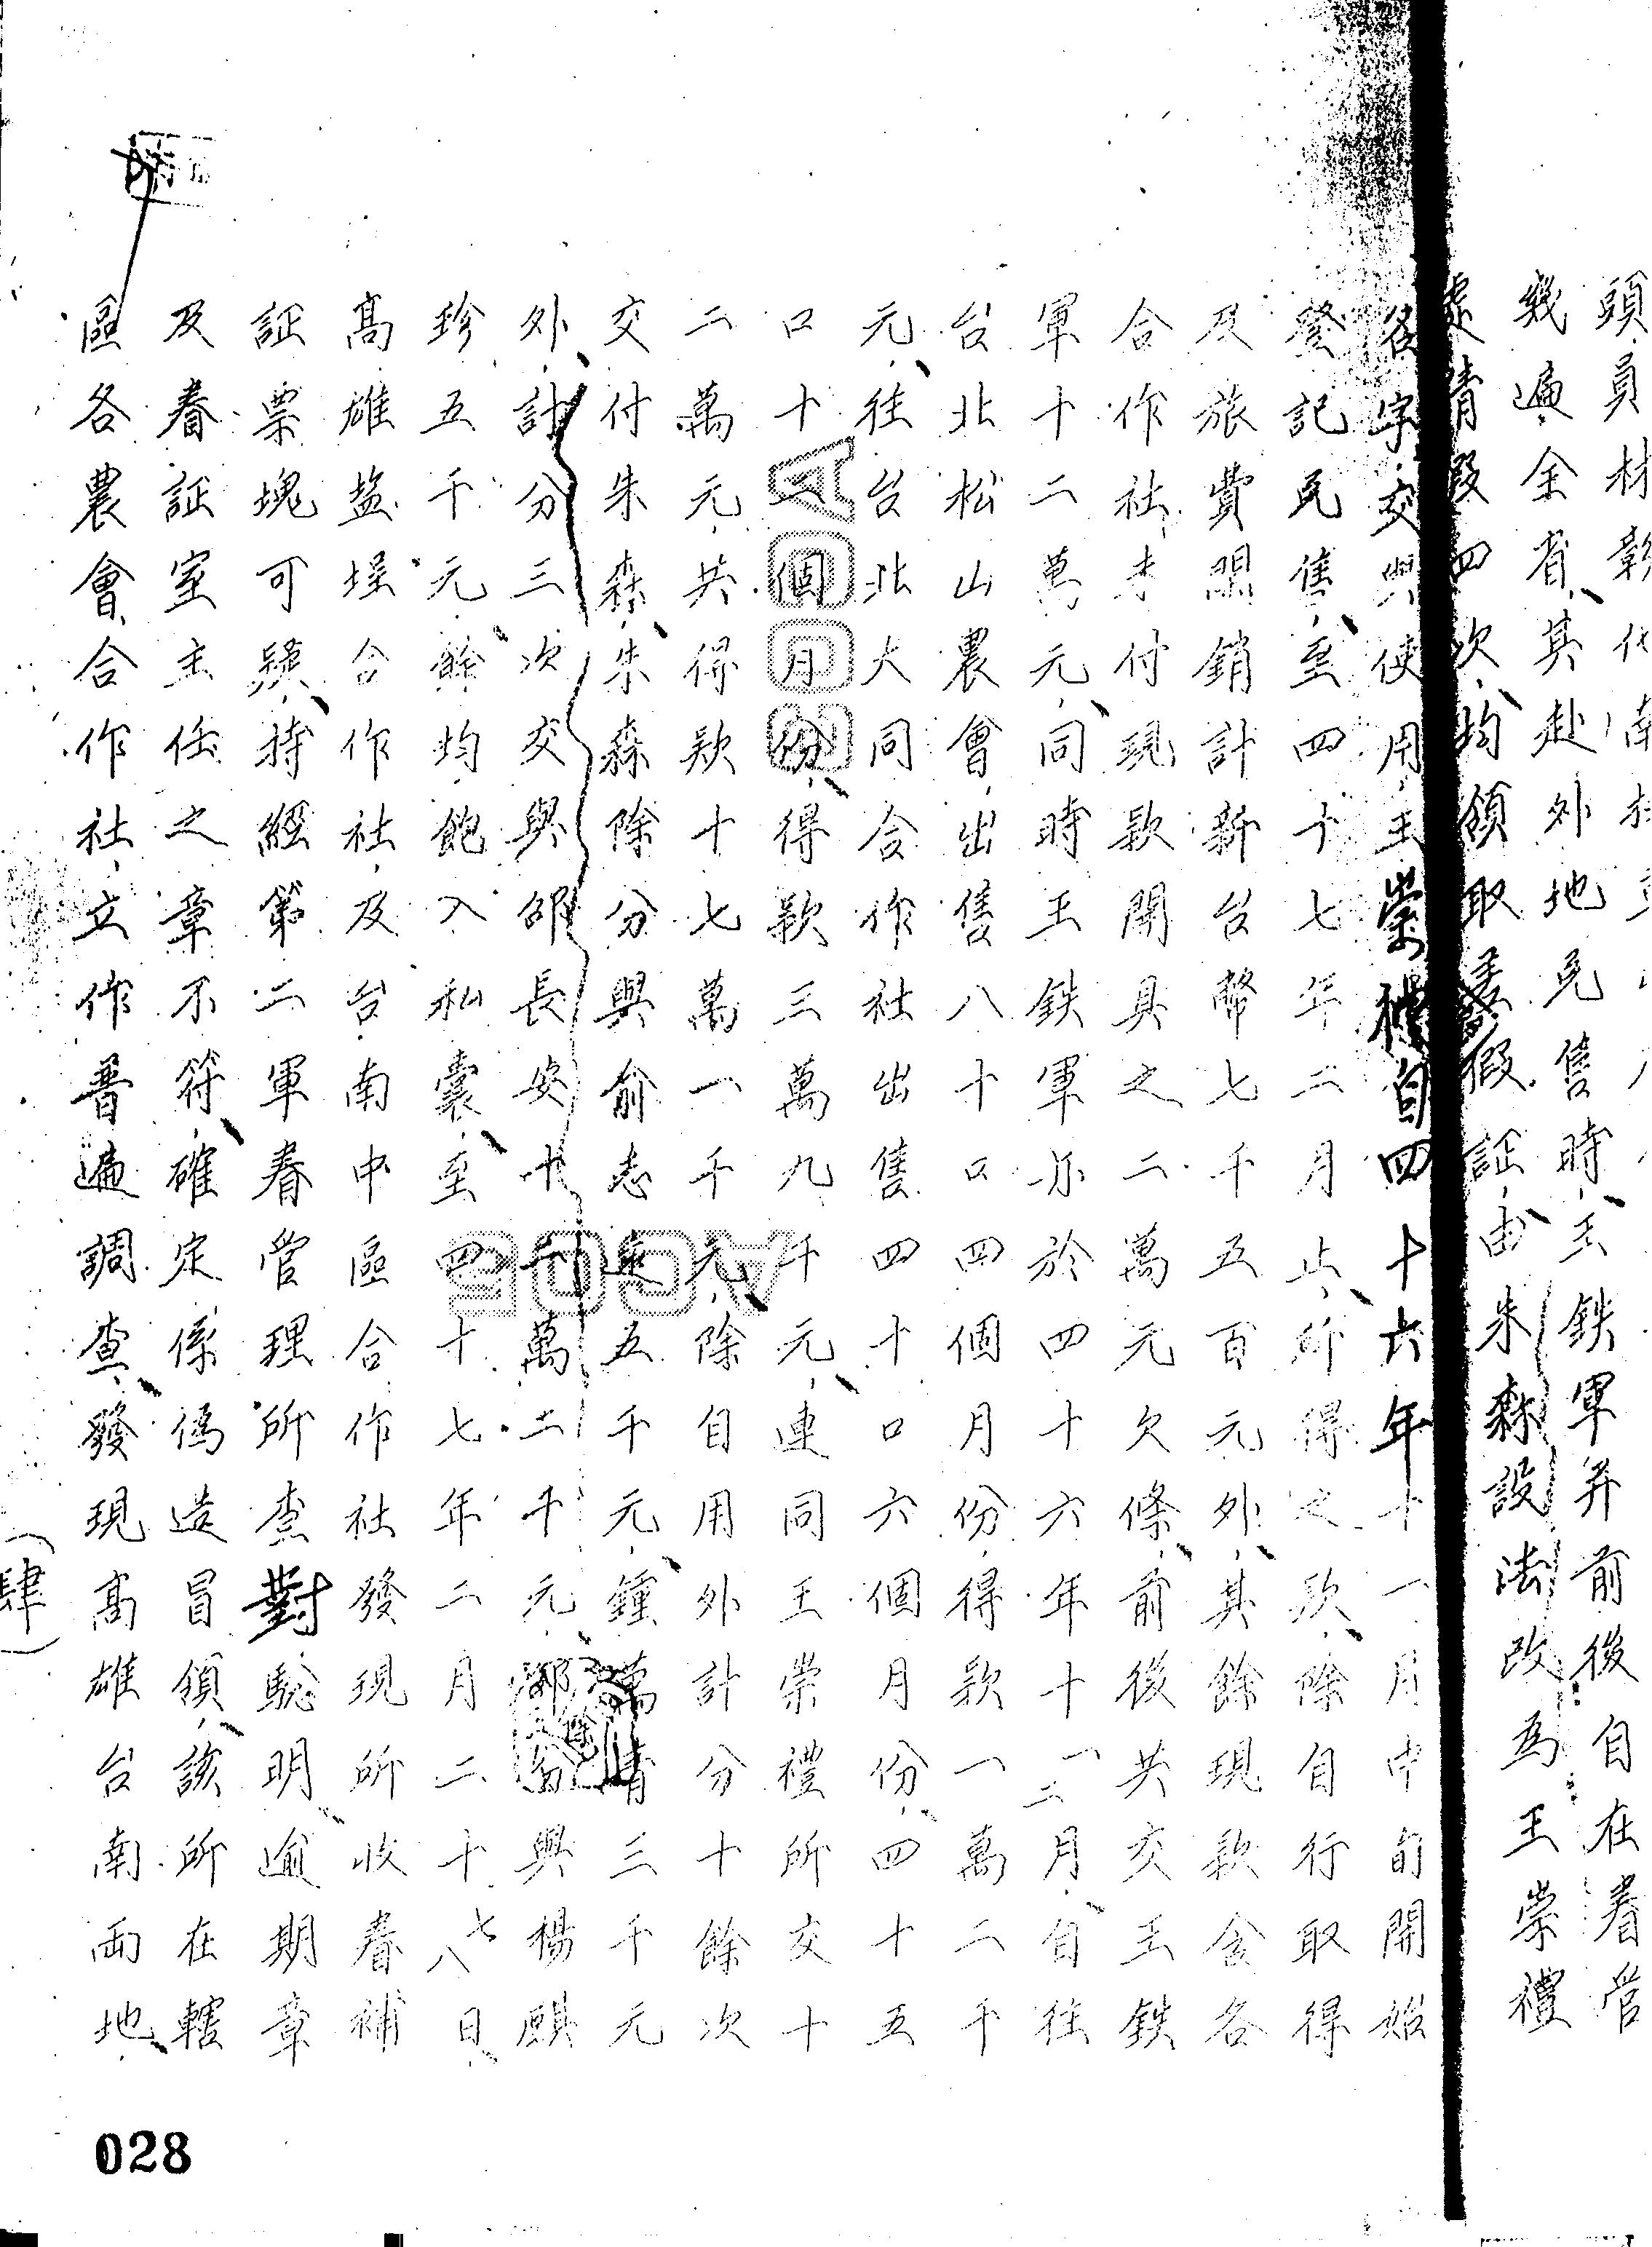 頭員林彰化南投
幾遍全省、其赴外地兌售時、王鉄軍并前後自在眷管
處請假四次、均領取差假証、由朱森設法改為王崇禮
名字交與使用、王崇禮自四十六年十一月中旬開始
登記兌售、至四十七年二月止、所得之欵、除自行取得
及旅費開銷計新台幣七千五百元外、其餘現款含各
合作社、未付現款開具之二萬元欠條、前後共交王鉄
軍十二萬元、同時王鉄軍亦於四十六年十一二月、自往
台北松山農會、出售八十口四個月份、得款一萬二千
元、往台北大同合作社出售四十口六個月份、四十五
口十一個月份、得款三萬九千元、連同王崇禮所交十
二萬元、共得欵十七萬一千元、除自用外計分十餘次
交付朱森、朱森除分與俞志遠五千元、鍾萬清三千元
外、計分三次交與邵長安十千萬二千元、鄒分與楊頤
珍五千元、餘均飽入私囊、至四十七年二月二十七八日、
高雄塩埕合作社、及台南中區合作社發現所收眷補
証票塊可疑、持經第二軍眷管理所查對驗明、逾期章
及眷証室主任之章不符、確定係偽造冒領、該所在轄
區各農會、合作社、立作普遍調查、發現高雄台南兩地、
（肆）
028